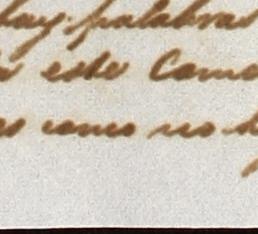 hay palabras
este Camo
como no h